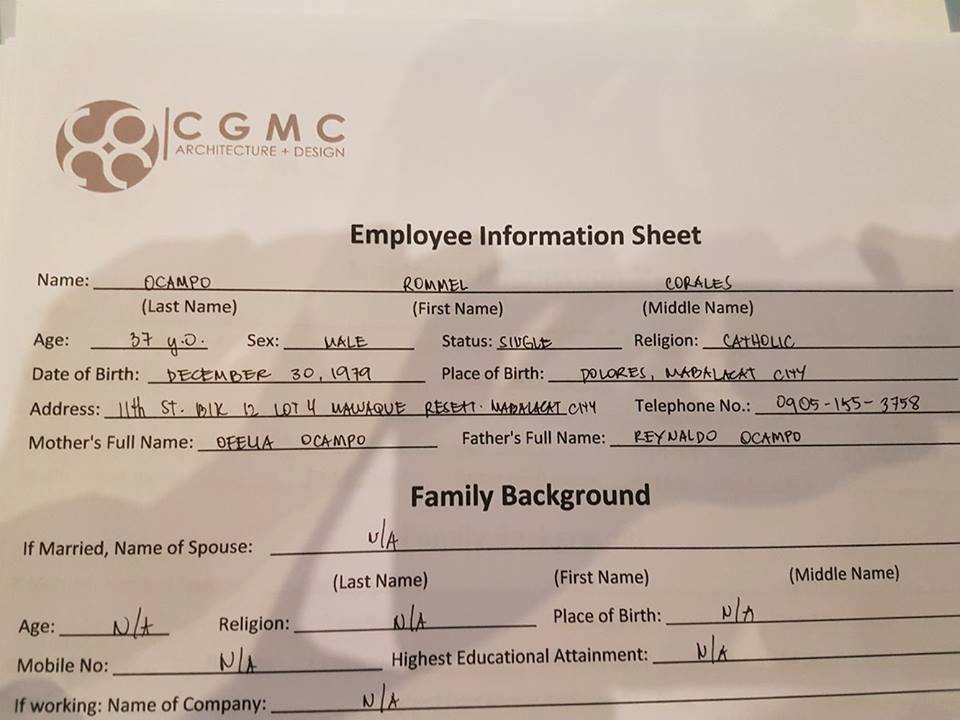 CGMC
ARCHITECTURE + DESIGN
Employee Information Sheet
Name: OCAMPO ROMMEL CORALES
(Last Name) (First Name) (Middle Name)
Age: 37 y.o. Sex: MALE Status: SINGLE Religion: CATHOLIC
Date of Birth: DECEMBER 30, 1979 Place of Birth: DOLORES, MABALACAT CITY
Address: 11th ST. BLK 12 LOT 4 MAWAQUE RESETT. MABALACAT CITY Telephone No.: 0905-155-3758
Mother's Full Name: OFELIA OCAMPO Father's Full Name: REYNALDO OCAMPO
Family Background
If Married, Name of Spouse: N/A
(Last Name) (First Name) (Middle Name)
Age: N/A Religion: N/A Place of Birth: N/A
Mobile No: N/A Highest Educational Attainment: N/A
If working: Name of Company: N/A